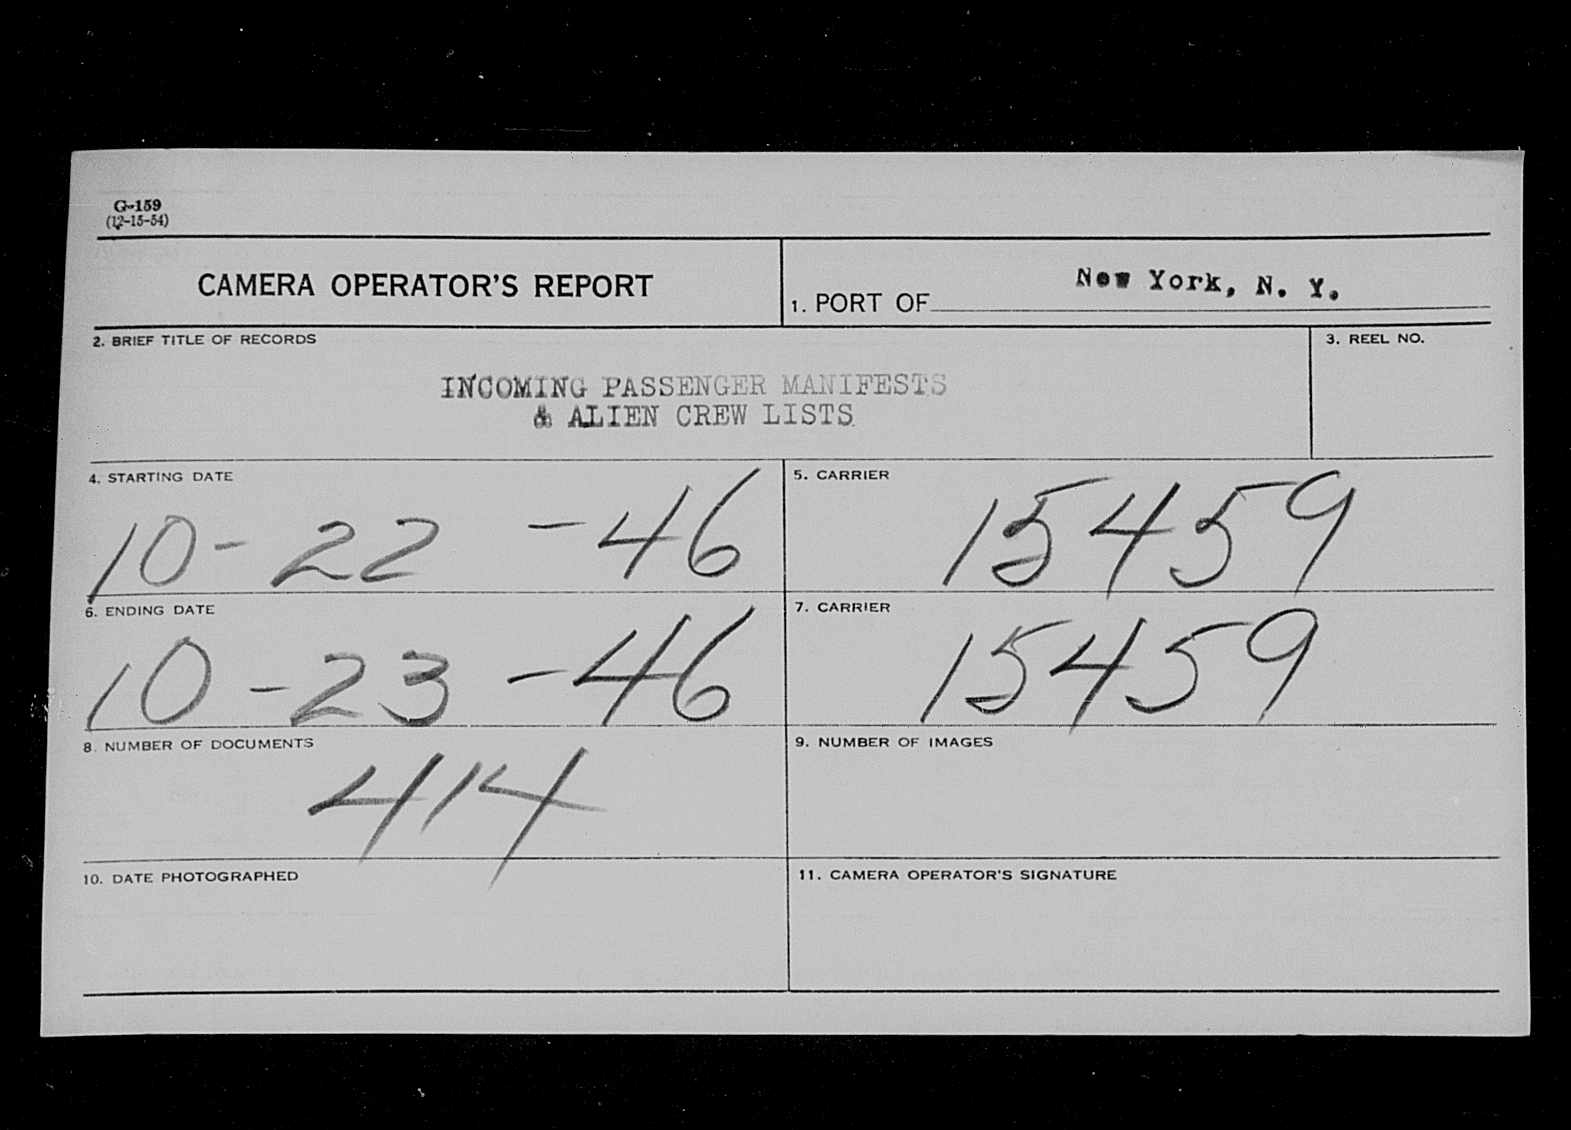 G-159
(12-15-54)
CAMERA OPERATOR'S REPORT
1. PORT OF New York, N. Y.
2. BRIEF TITLE OF RECORDS
INCOMING PASSENGER MANIFESTS
& ALIEN CREW LISTS
3. REEL NO.
4. STARTING DATE
10-22-46
5. CARRIER
15459
6. ENDING DATE
10-23-46
7. CARRIER
15459
8. NUMBER OF DOCUMENTS
414
9. NUMBER OF IMAGES
10. DATE PHOTOGRAPHED
11. CAMERA OPERATOR'S SIGNATURE